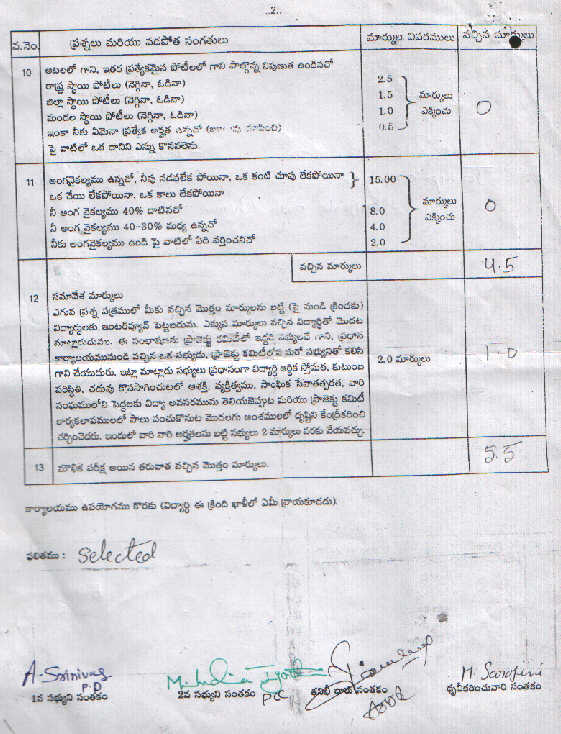 ..2..
వ.నెం. ప్రశ్నలు మరియు వడపోత సంగతులు మార్కుల వివరములు వచ్చిన మార్కులు
10 ఆటలలో గాని, ఇతర ప్రత్యేకమైన పోటీలలో గాని పాల్గొన్న నిపుణత ఉండినచో
రాష్ట్ర స్థాయి పోటీలు (నెగ్గినా, ఓడినా) 2.5
జిల్లా స్థాయి పోటీలు (నెగ్గినా, ఓడినా) 1.5 మార్కులు
మండల స్థాయి పోటీలు (నెగ్గినా, ఓడినా) 1.0 ఎక్కించు 0
ఇంకా నీకు ఏమైనా ప్రత్యేక అర్హత ఉన్నచో 0.5
పై వాటిలో ఒక దానిని ఎన్ను కొనవలెను.
11 అంగవైకల్యము ఉన్నచో, నీవు నడవలేక పోయినా, ఒక కంటి చూపు లేకపోయినా 15.00
ఒక చేయి లేకపోయినా, ఒక కాలు లేకపోయినా మార్కులు
నీ అంగ వైకల్యము 40% దాటినచో 8.0 ఎక్కించు 0
నీ అంగ వైకల్యము 40-30% మధ్య ఉన్నచో 4.0
నీకు అంగవైకల్యము ఉండి పై వాటిలో ఏది వర్తించనిచో 2.0
వచ్చిన మార్కులు 4.5
12 సమావేశ మార్కులు
ఎగువ ప్రశ్న పత్రములో మీకు వచ్చిన మొత్తం మార్కులను బట్టి (పై నుండి క్రిందకు)
విద్యార్థులకు ఇంటర్వ్యూవ్ పెట్టబడును. ఎక్కువ మార్కులు వచ్చిన విద్యార్థితో మొదట
మాట్లాడుదురు. ఈ సంభాషణను ప్రాజెక్టు కమిటీలో ఇద్దరి సభ్యులచే గాని, ప్రధాన
కార్యాలయమునుండి వచ్చిన ఒక సభ్యుడు, ప్రాజెక్టు కమిటీలోని మరో సభ్యునితో కలిసి
గాని చేయుదురు. ఇట్లా మాట్లాడు సభ్యులు ప్రధానంగా విద్యార్థి ఆర్థిక స్తోమత, కుటుంబ 2.0 మార్కులు 1.0
పరిస్థితి, చదువు కొనసాగించుటలో ఆశక్తి, వ్యక్తిత్వము, సాంఘిక సేవాతత్పరత, వారి
సంఘములోని పెద్దలకు విద్యా అవసరమును తెలియజెప్పుట మరియు ప్రాజెక్టు కమిటీ
కార్యకలాపములలో పాలు పంచుకొనుట మొదలగు అంశములలో దృష్టిని కేంద్రీకరించి
చర్చించెదరు. ఇందులో వారి వారి అర్హతలను బట్టి సభ్యులు 2 మార్కులు వరకు వేయవచ్చు.
13 మౌఖిక పరీక్ష అయిన తరువాత వచ్చిన మొత్తం మార్కులు. 5.5
కార్యాలయము ఉపయోగము కొరకు (విద్యార్థి ఈ క్రింది ఖాళీలో ఏమీ వ్రాయకూడదు).
ఫలితము : Selected
A. Srinivas
P.D PC
1వ సభ్యుని సంతకం 2వ సభ్యుని సంతకం తనిఖీ దారు సంతకం ధృవీకరించువారి సంతకం